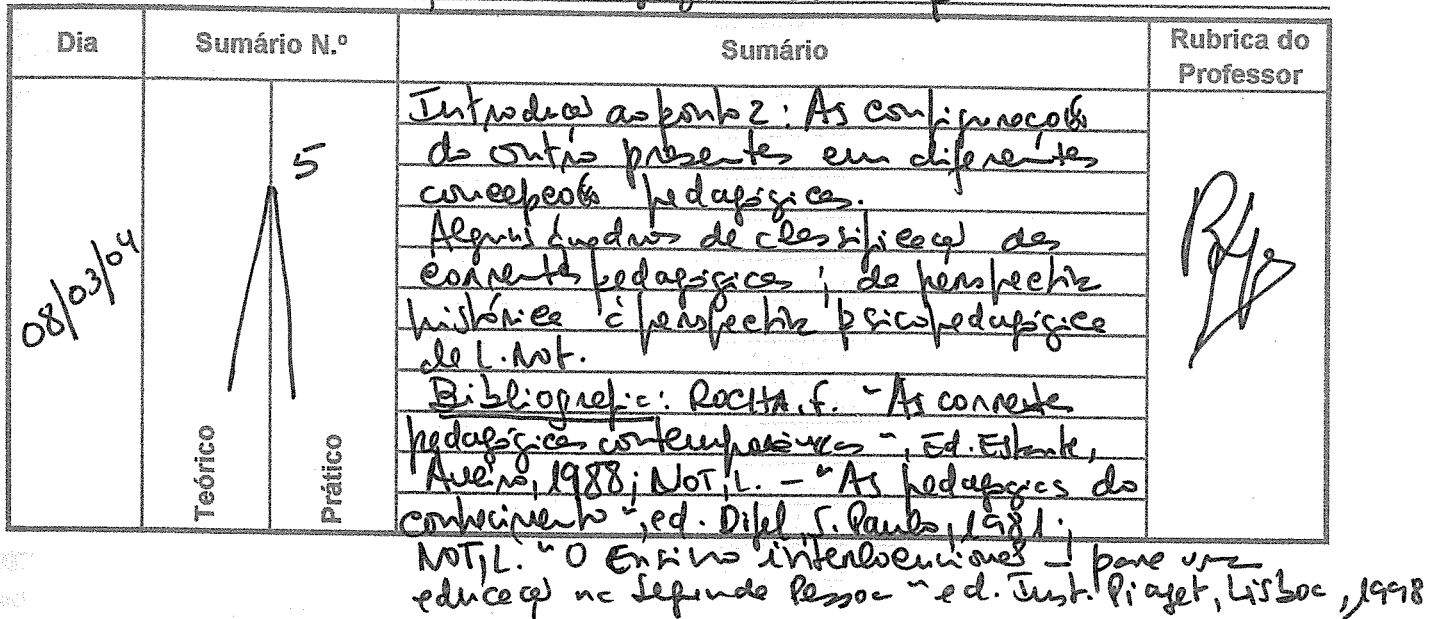 Dia Sumário N.º Sumário Rubrica do Professor
08/03/04
5
Teórico
Prático
Introdução ao ponto 2: As configurações
do outro presentes em diferentes
concepções pedagógicas.
Alguns quadros de classificação das
correntes pedagógicas: da perspectiva
histórica à perspectiva psicopedagógica
de L. Not.
Bibliografia: ROCHA, F. "As correntes
pedagógicas contemporâneas", Ed. Estante,
Aveiro, 1988; NOT, L. - "As pedagogias do
conhecimento", ed. Difel, S. Paulo, 1981;
NOT, L. "O Ensino interlocucional - para uma
educação na segunda Pessoa" ed. Inst. Piaget, Lisboa, 1998